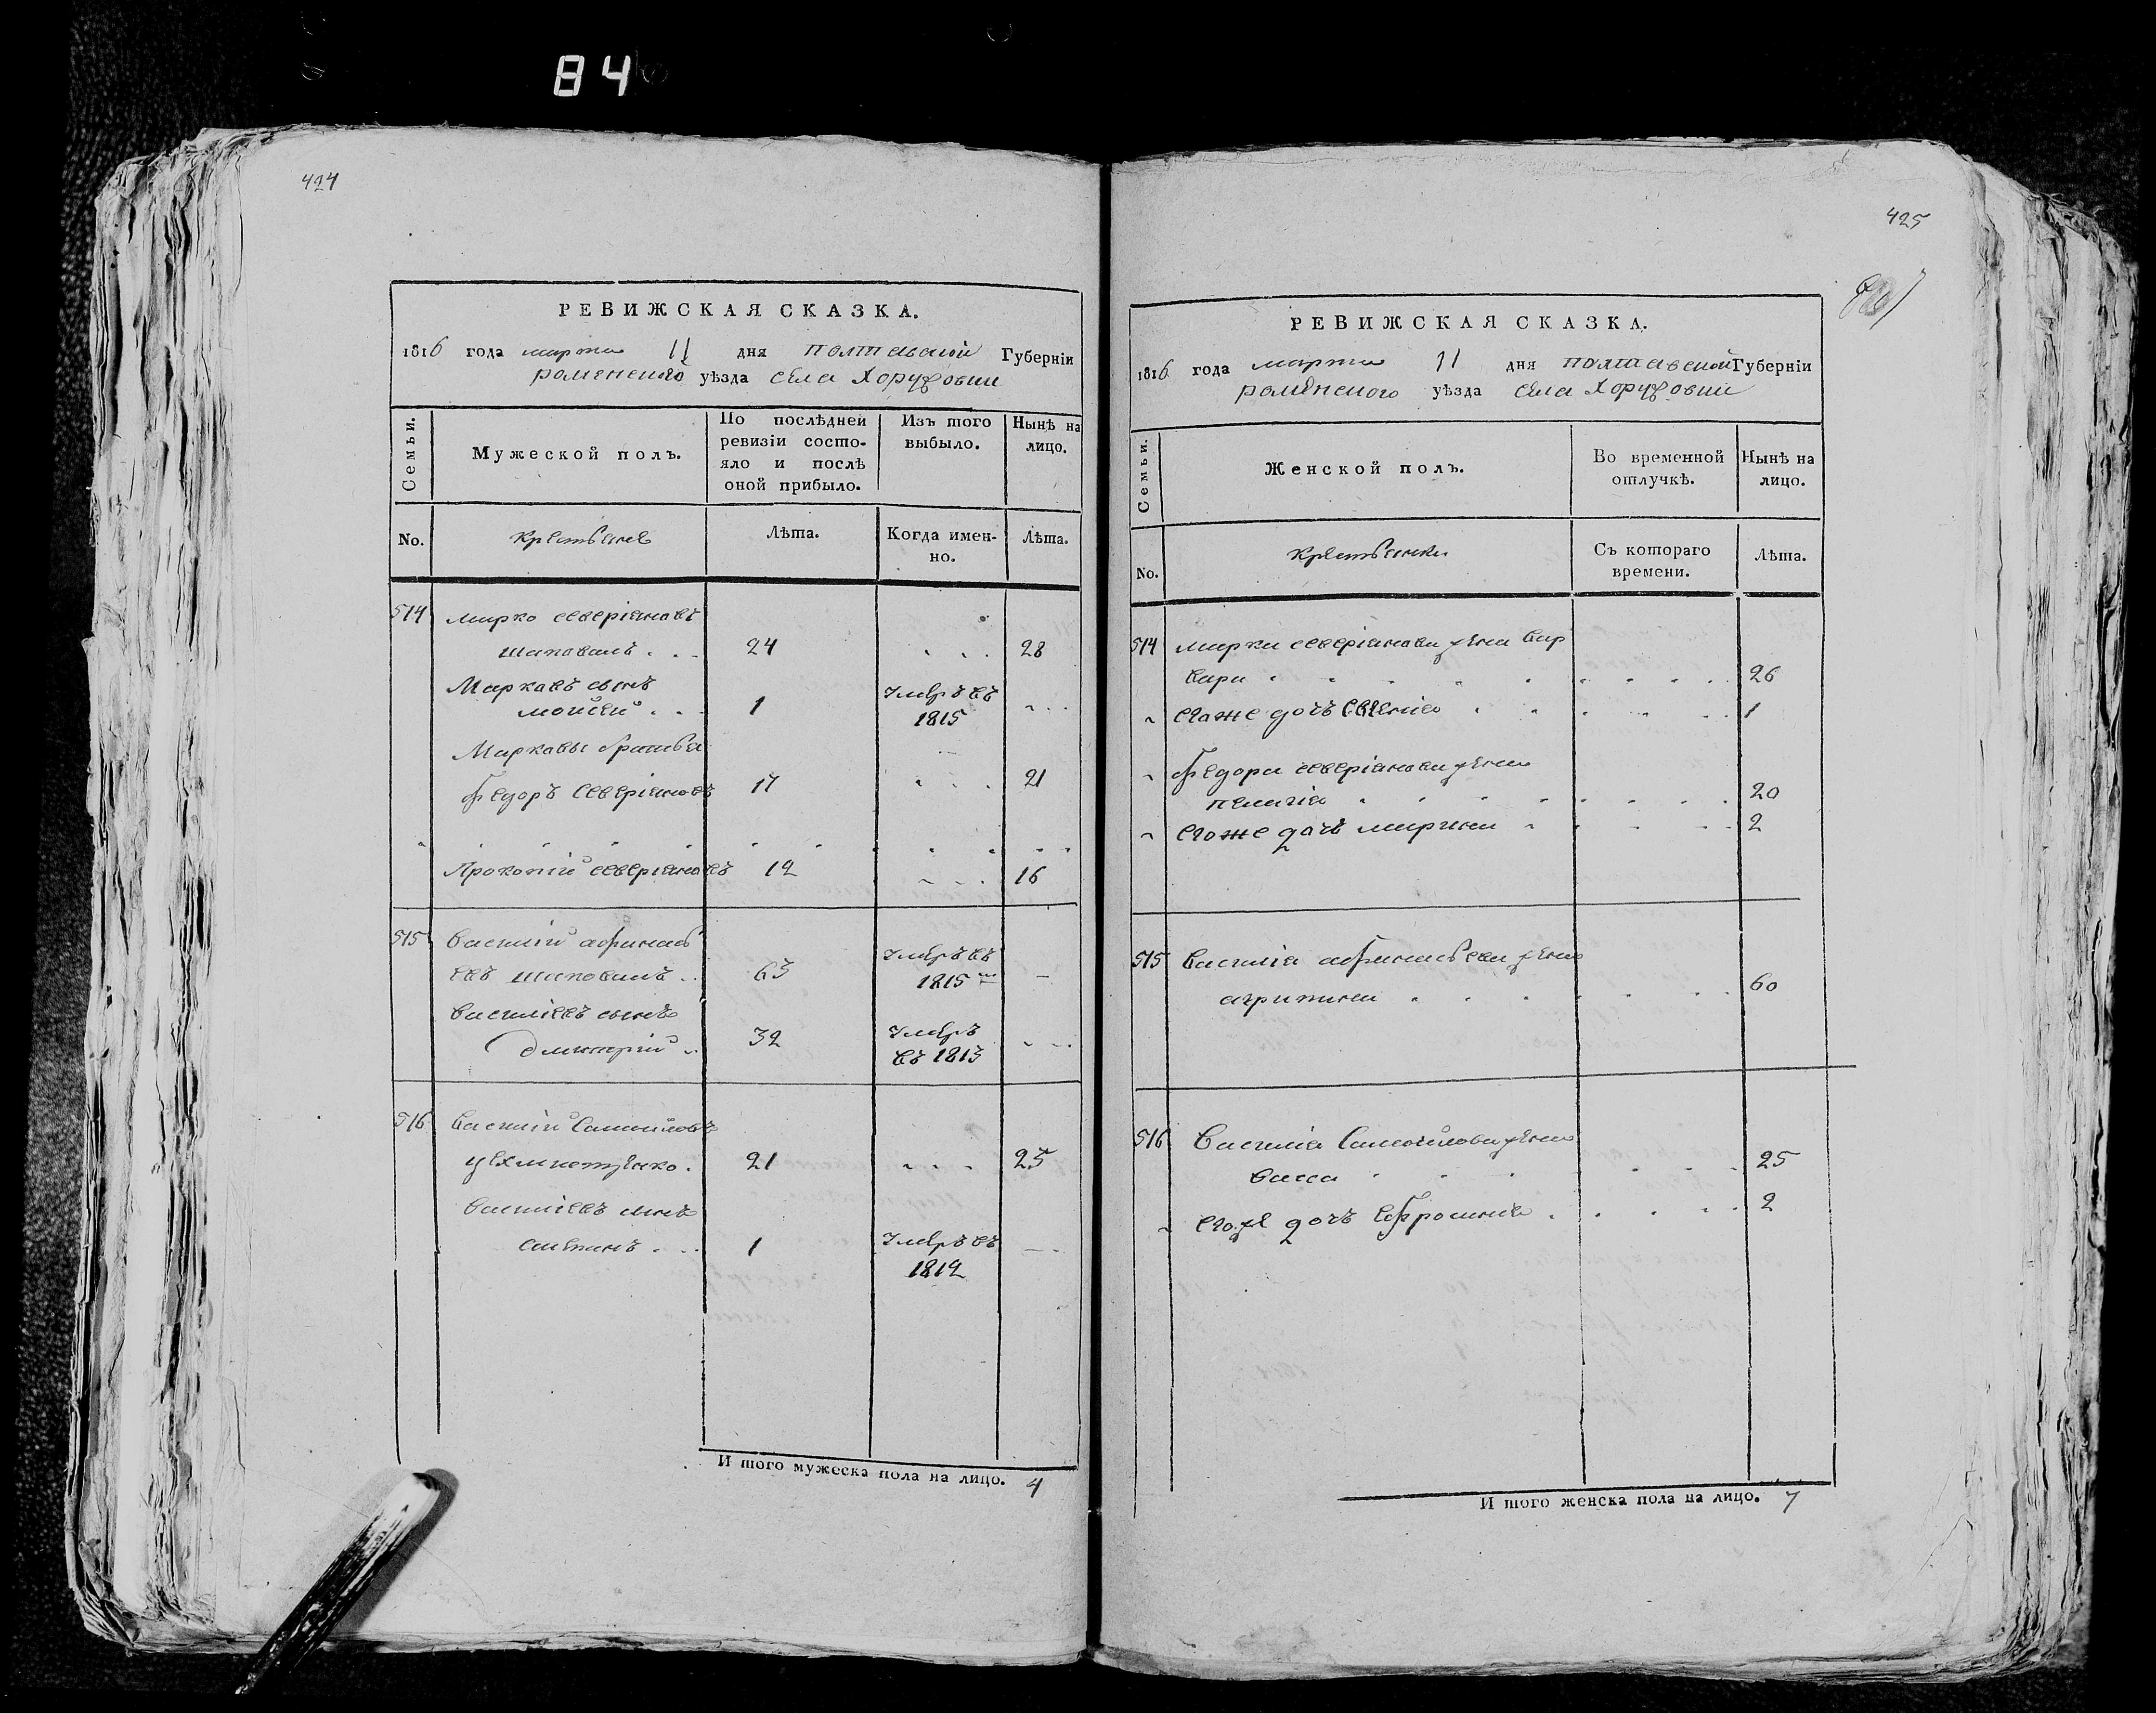 84
424
РЕВИЖСКАЯ СКАЗКА.
1816 года марта 11 дня полтавской Губерніи
роменского уѣзда села Хоружовки
Семьи.
Мужеской полъ.
По послѣдней ревизіи состояло и послѣ оной прибыло.
Изъ того выбыло.
Нынѣ на лицо.
No.
Крестьяне
Лѣта.
Когда именно.
Лѣта.
514 марко северіановъ
шаповалъ . . . 24 . . . 28
Марковъ сынъ
мойсей . . . 1 умерь въ 1815 . . .
Марковы братья
Федоръ Северіановъ 17 . . . 21
Прокопій северіановъ 12 . . . 16
515 Василій афанасьевъ шаповалъ . . 63 умерь въ 1815 —
Василіевъ сынъ
дмитрій . . 32 умерь въ 1813 . . .
516 Василій Самойловъ
. 21 . . . 25
Василіевъ сынъ
1 умерь въ 1812 — .
И того мужеска пола на лицо. 4
425
РЕВИЖСКАЯ СКАЗКА.
1816 года марта 11 дня полтавской Губерніи
роменского уѣзда села Хоружовки
Семьи.
Женской полъ.
Во временной отлучкѣ.
Нынѣ на лицо.
No.
крестьянки
Съ котораго времени.
Лѣта.
514 марка северіанова жена вар
вара . . . 26
егоже дочь евгенія . . . 1
федора северіанова жена
пелагія . . . 20
егоже дочь марина . . . 2
515 Василія афанасьева жена
агрипина . . . 60
516 Василія Самойлова жена
васса . . . 25
егоже дочь ефросинія . . . 2
И того женска пола на лицо. 7